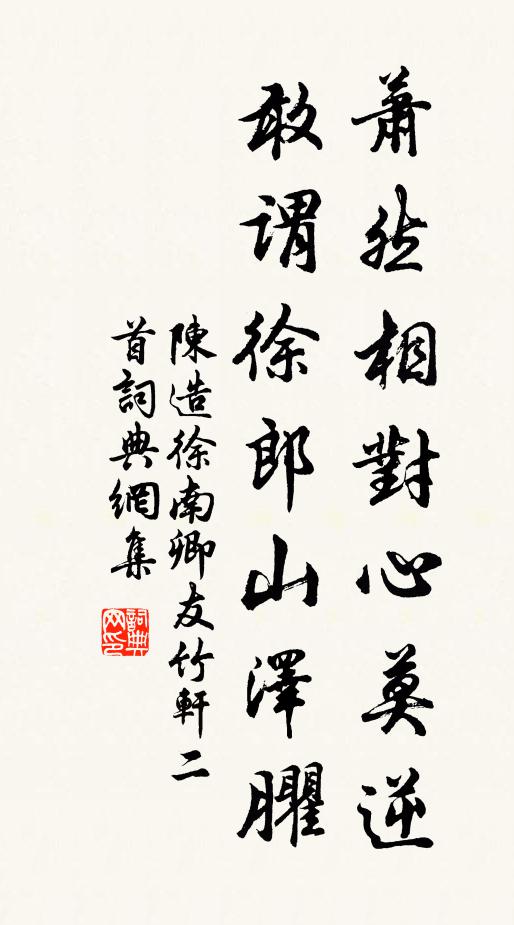 蕭然相對心莫逆
敢謂徐郎山澤臞
陳造徐南卿友竹軒二
首詞典網集
詞典網印